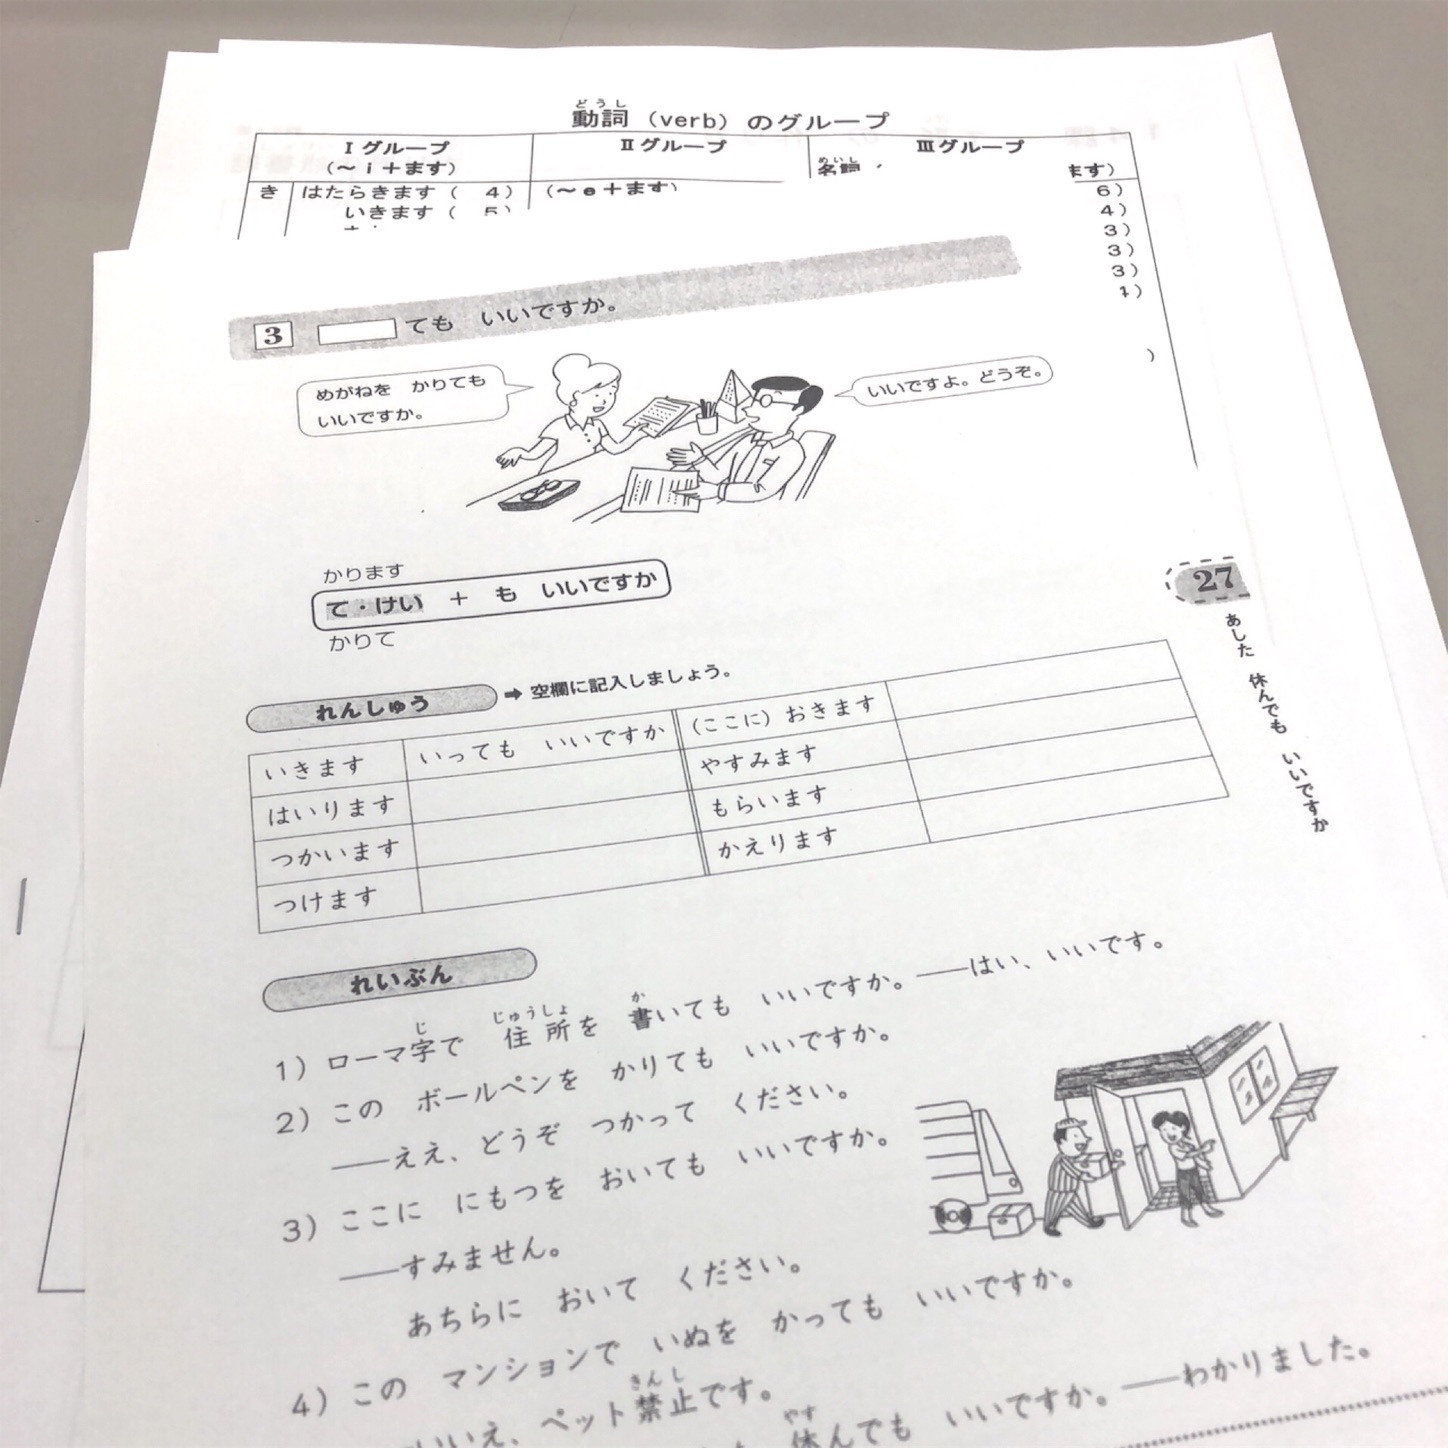 動詞（verb）のグループ
どうし
Ⅰグループ
（～ｉ＋ます）
Ⅱグループ
Ⅲグループ
めいし
名詞
ます）
き はたらきます（ 4）
（～ｅ＋ます）
6）
いきます（ 5）
4）
3）
3）
3）
）
3 ても いいですか。
めがねを かりても
いいですか。
いいですよ。どうぞ。
かります
て・けい ＋ も いいですか
かりて
27
あした 休んでも いいですか
れんしゅう ➡ 空欄に記入しましょう。
いきます いっても いいですか （ここに）おきます
はいります やすみます
つかいます もらいます
つけます かえります
れいぶん
じ じゅうしょ か
1）ローマ字で 住所を 書いても いいですか。――はい、いいです。
2）この ボールペンを かりても いいですか。
――ええ、どうぞ つかって ください。
3）ここに にもつを おいても いいですか。
――すみません。
あちらに おいて ください。
4）この マンションで いぬを かっても いいですか。
きんし
いいえ、ペット禁止です。
やす
休んでも いいですか。――わかりました。